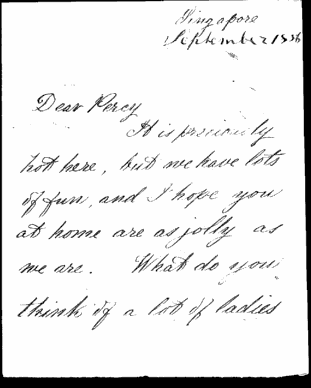 Singapore
September 2 1836
Dear Percy
It is preciously
hot here, but we have lots
of fun, and I hope you
at home are as jolly as
we are. What do you
think of a lot of ladies